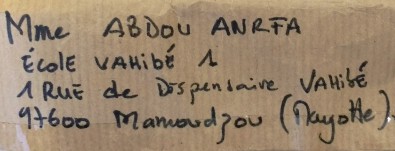 Mme ABDOU ANRFA
ÉCOLE VAHIBÉ 1
1 RUE de Dispensaire VAHIBÉ
97600 Mamoudzou (Mayotte)